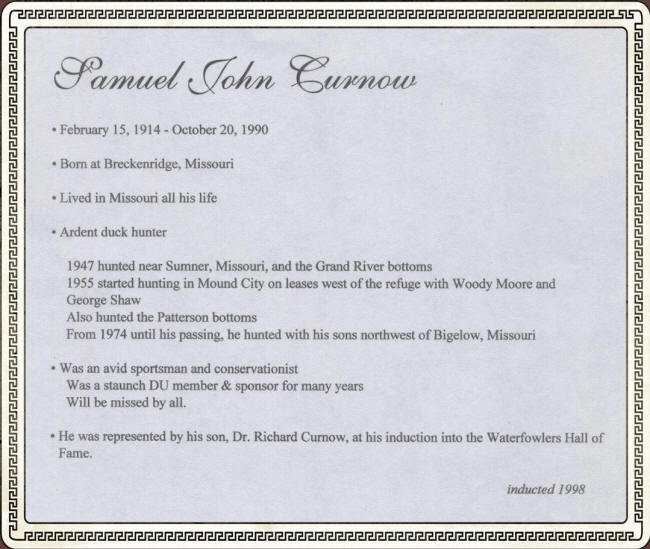 Samuel John Curnow
• February 15, 1914 - October 20, 1990
• Born at Breckenridge, Missouri
• Lived in Missouri all his life
• Ardent duck hunter
1947 hunted near Sumner, Missouri, and the Grand River bottoms
1955 started hunting in Mound City on leases west of the refuge with Woody Moore and
George Shaw
Also hunted the Patterson bottoms
From 1974 until his passing, he hunted with his sons northwest of Bigelow, Missouri
• Was an avid sportsman and conservationist
Was a staunch DU member & sponsor for many years
Will be missed by all.
• He was represented by his son, Dr. Richard Curnow, at his induction into the Waterfowlers Hall of
Fame.
inducted 1998